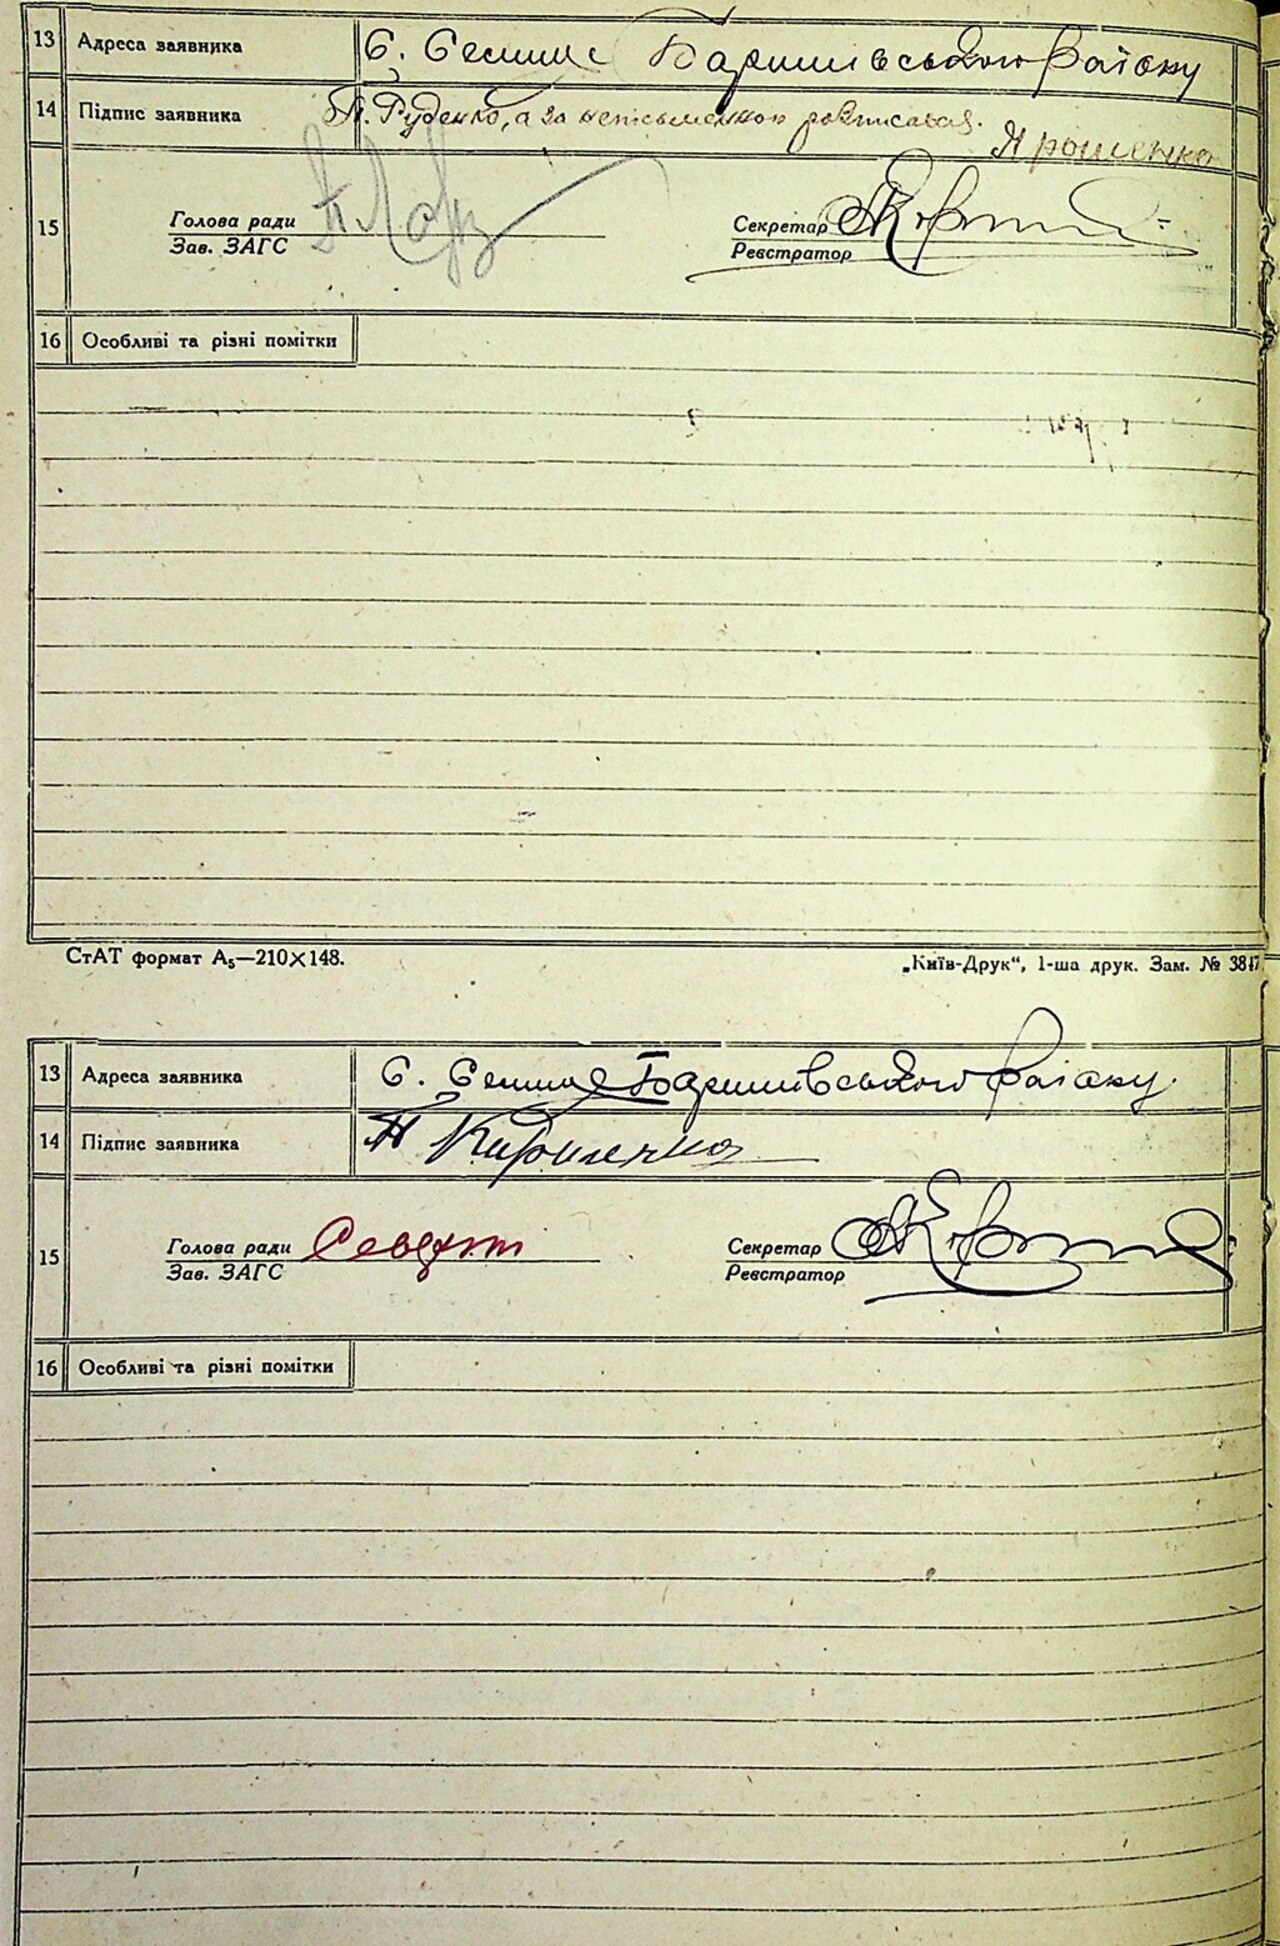 13 Адреса заявника С. Селище Баришівського району
14 Підпис заявника П. Руденко, а за неписьменного розписався. Ярошенко
15 Голова ради Секретар
Зав. ЗАГС Реєстратор
16 Особливі та різні помітки
СтАТ формат А₅—210×148. „Київ-Друк“, 1-ша друк. Зам. № 3847
13 Адреса заявника С. Селище Баришівського району.
14 Підпис заявника Кириленко
15 Голова ради Секретар
Зав. ЗАГС Реєстратор
16 Особливі та різні помітки